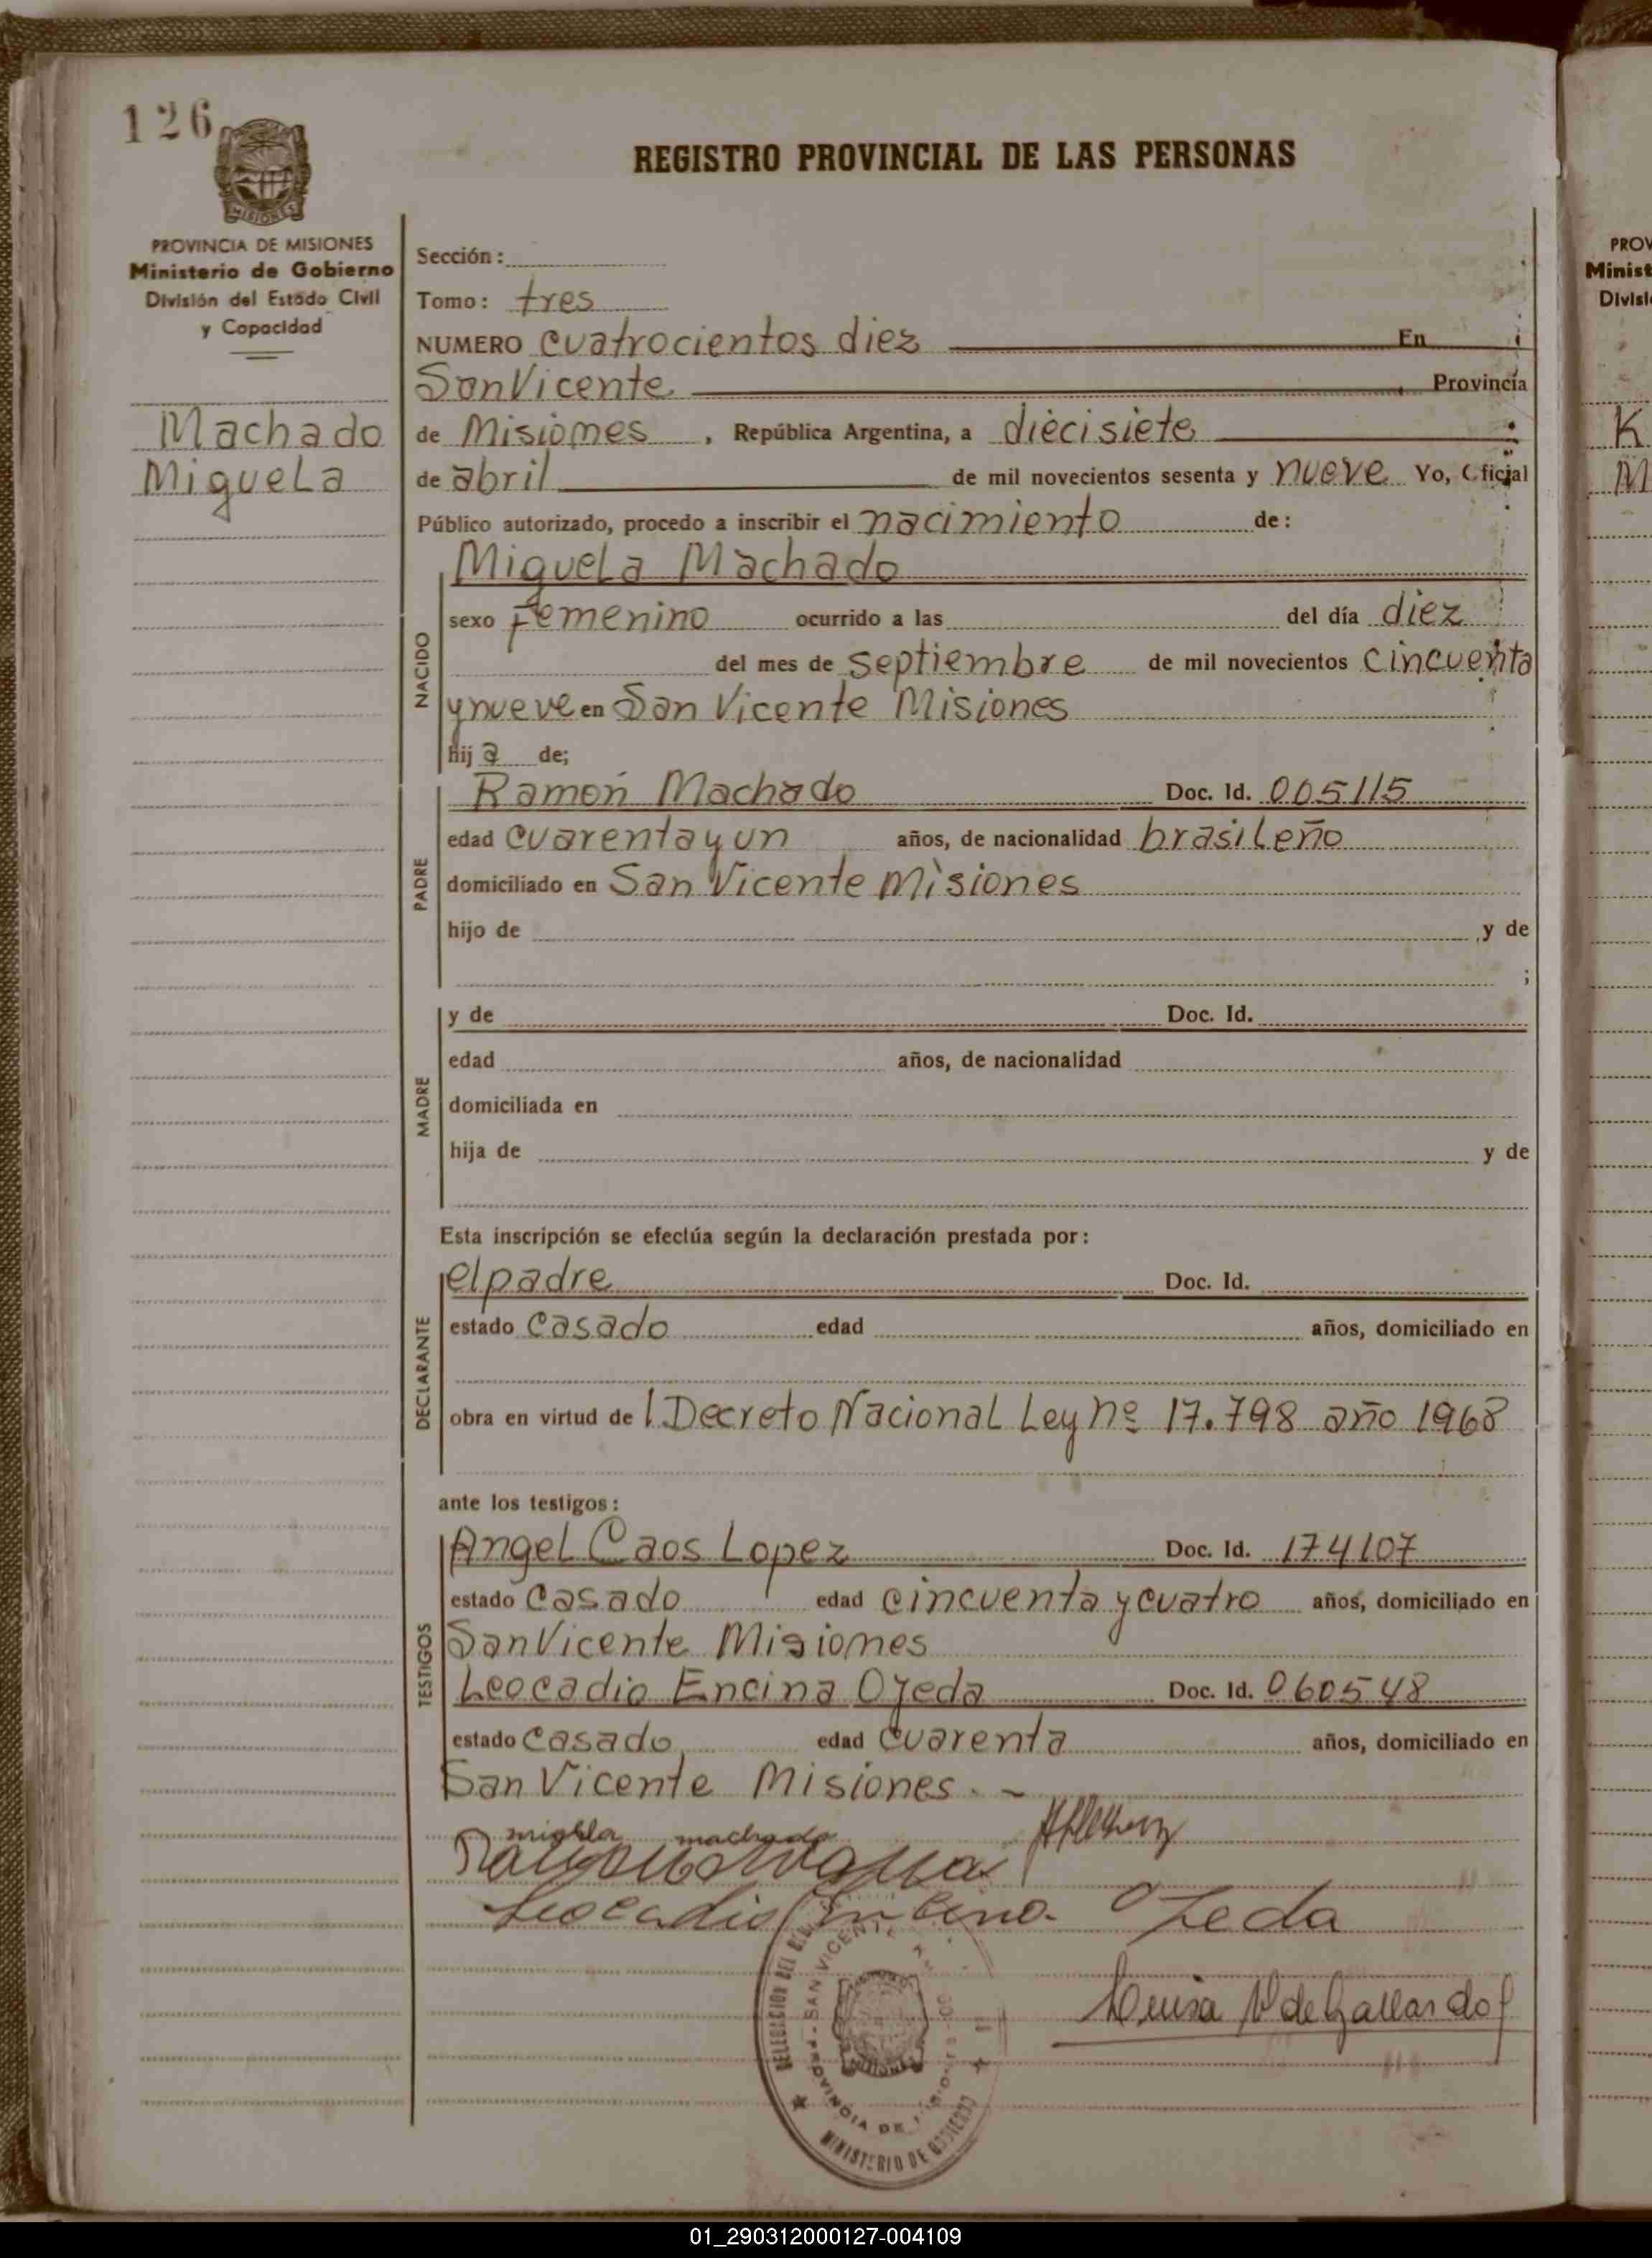 126
REGISTRO PROVINCIAL DE LAS PERSONAS
MISIONES
PROVINCIA DE MISIONES
Ministerio de Gobierno
División del Estado Civil
y Capacidad
Machado
Miguela
Sección:
Tomo: tres
NUMERO cuatrocientos diez En
San Vicente , Provincia
de Misiones , República Argentina, a diecisiete
de abril de mil novecientos sesenta y nueve Yo, Oficial
Público autorizado, procedo a inscribir el nacimiento de:
NACIDO
Miguela Machado
sexo Femenino ocurrido a las del día diez
del mes de septiembre de mil novecientos cincuenta
y nueve en San Vicente Misiones
hij a de;
PADRE
Ramón Machado Doc. Id. 005115
edad cuarenta y un años, de nacionalidad brasileño
domiciliado en San Vicente Misiones
hijo de y de
;
MADRE
y de Doc. Id.
edad años, de nacionalidad
domiciliada en
hija de y de
Esta inscripción se efectúa según la declaración prestada por:
DECLARANTE
el padre Doc. Id.
estado casado edad años, domiciliado en
obra en virtud de l Decreto Nacional Ley nº 17.798 año 1968
ante los testigos:
TESTIGOS
Angel Caos Lopez Doc. Id. 174107
estado casado edad cincuenta y cuatro años, domiciliado en
San Vicente Misiones
Leocadio Encina Ojeda Doc. Id. 060548
estado casado edad cuarenta años, domiciliado en
San Vicente Misiones. -
machado
Leocadio Encina Ojeda
SAN VICENTE
PROVINCIA DE
MINISTERIO DE GOBIERNO
Luisa V de Gallardo
PROV
Minist
Divisi
K
M
01_290312000127-004109